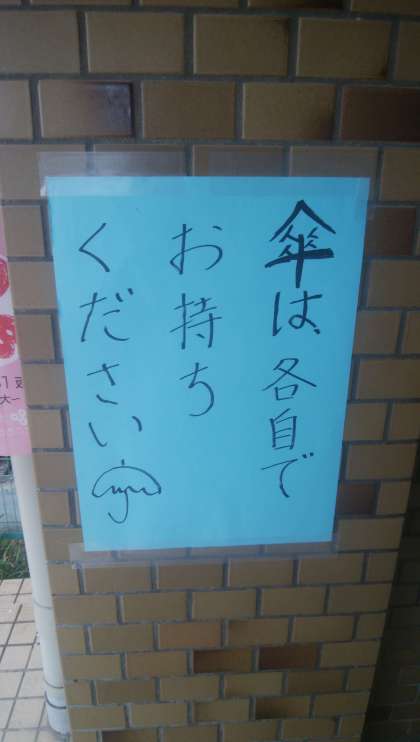 傘は、各自で
お持ち
ください